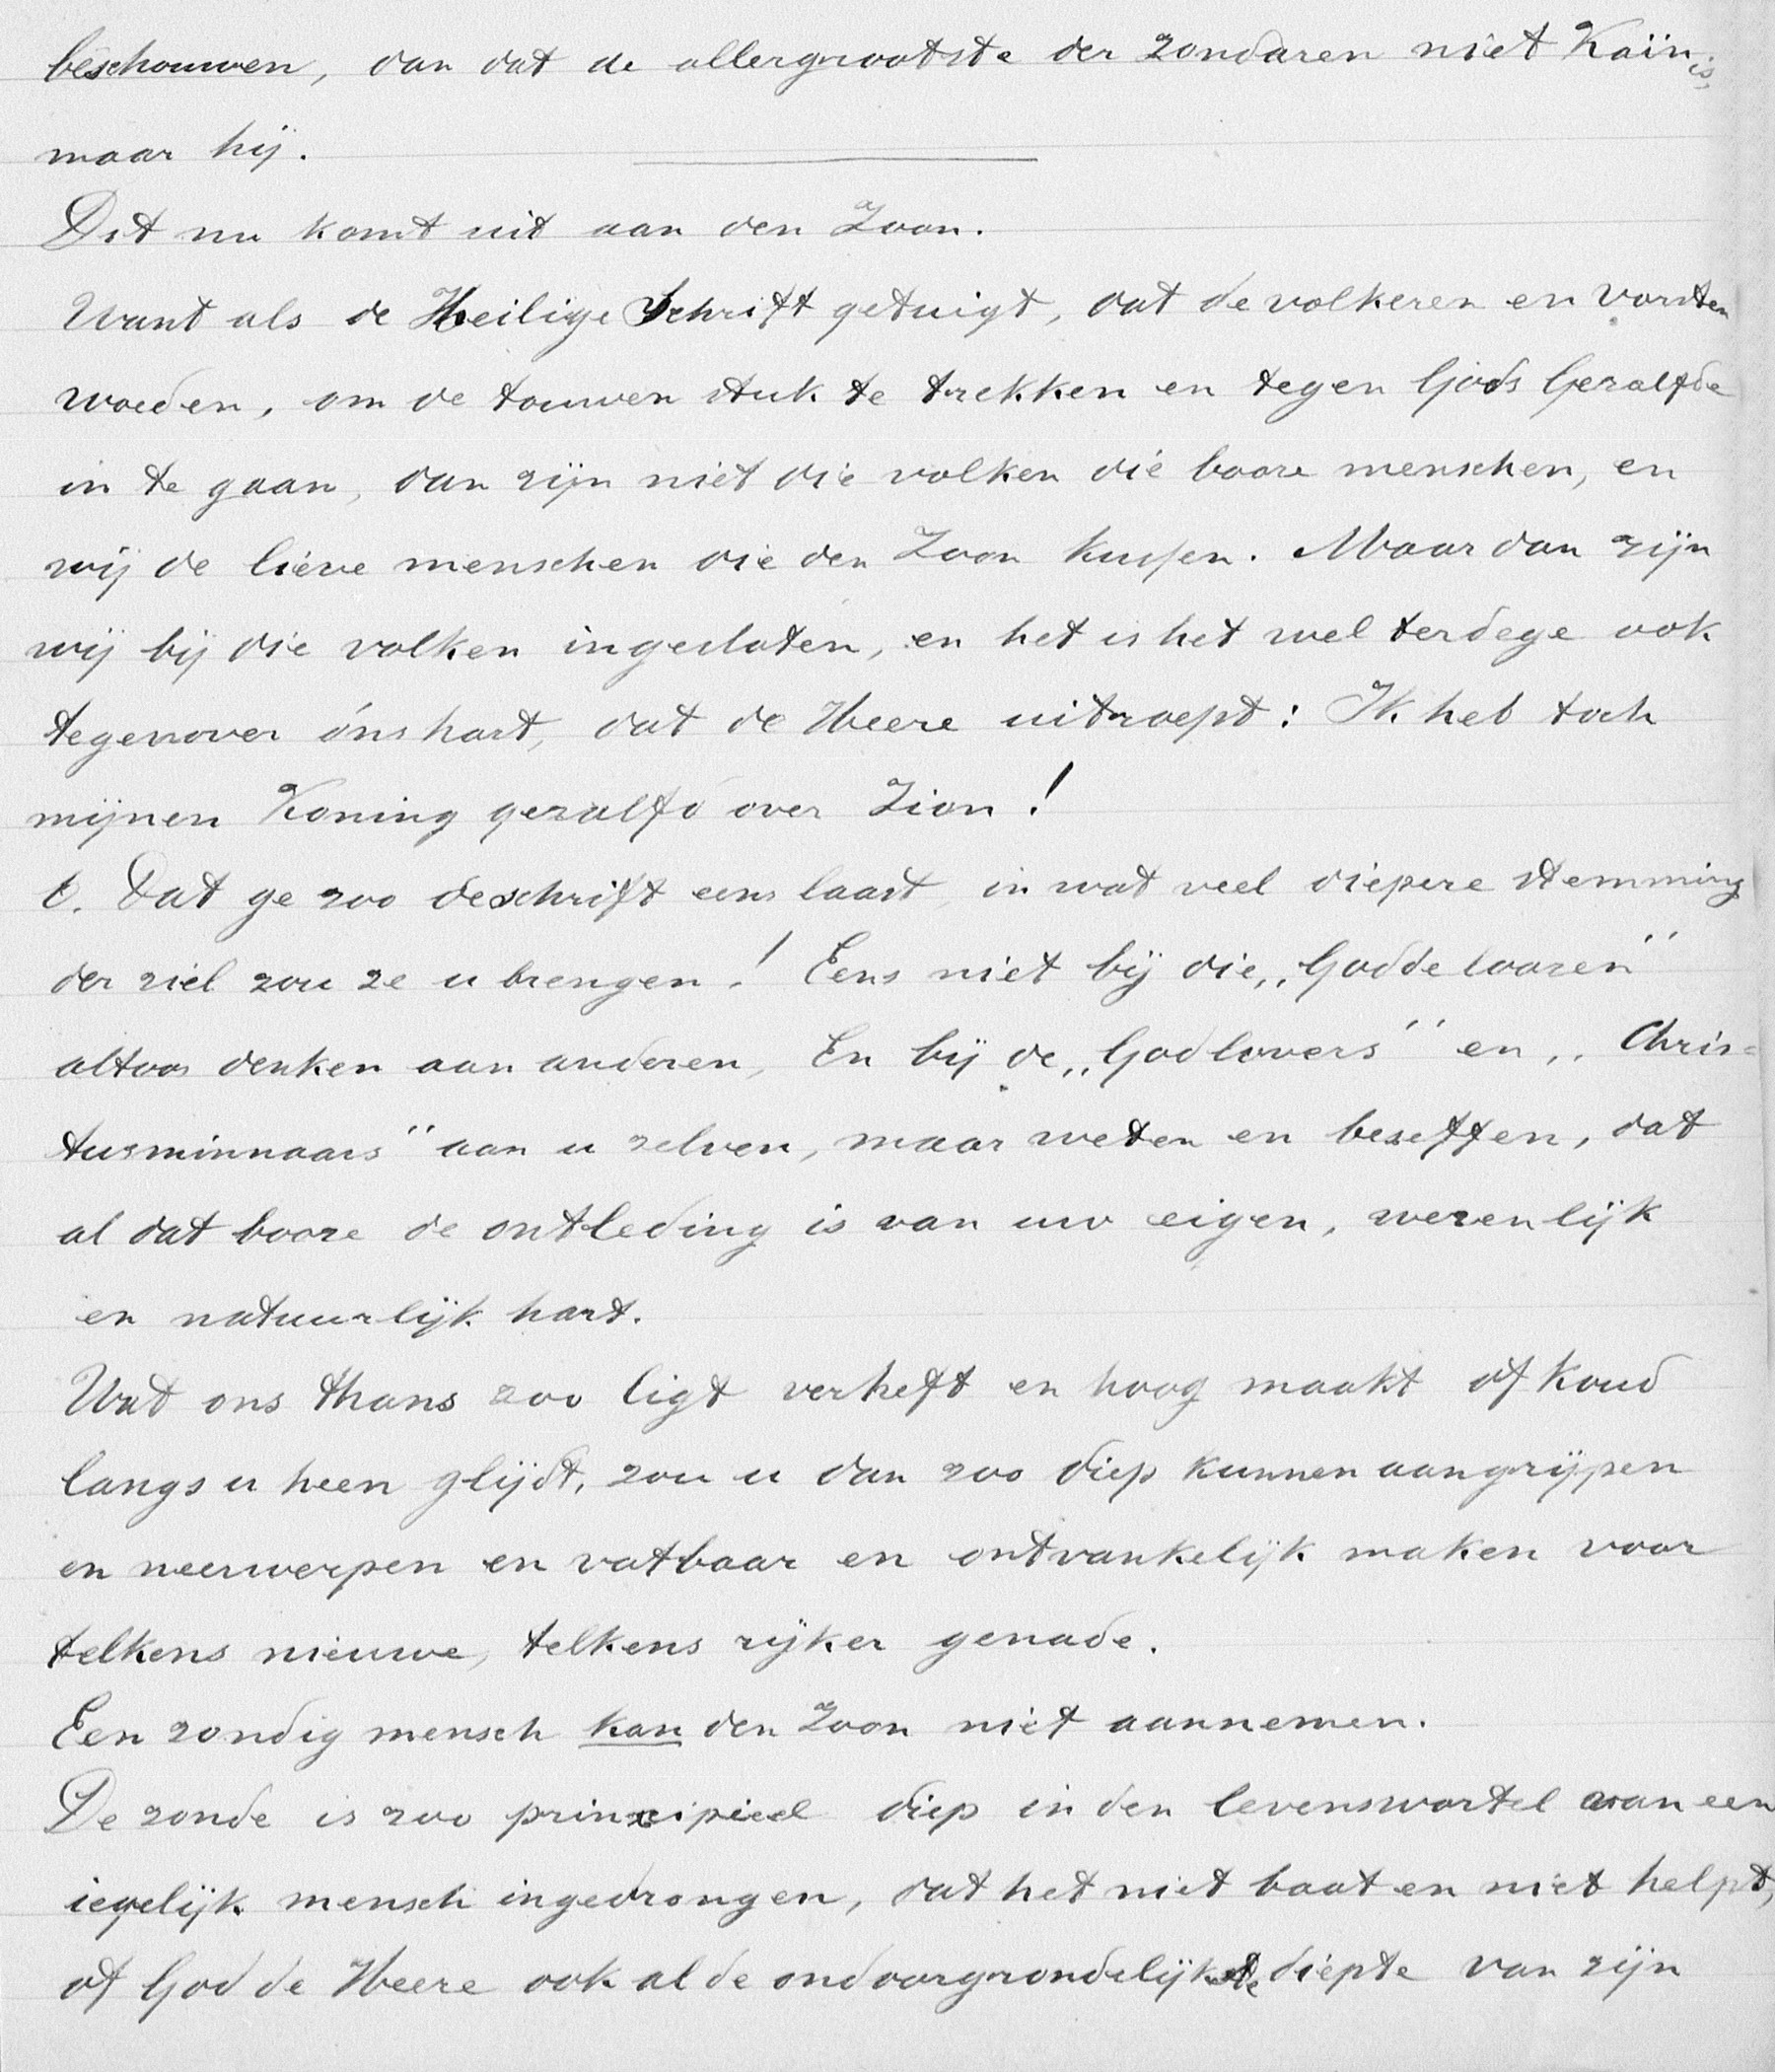 beschouwen, dan dat de allergrootste der zondaren niet Kaïn is,
maar hij.
Dit nu komt uit aan den Zoon.
Want als de Heilige Schrift getuigt, dat de volkeren en vorsten
woeden, om de touwen stuk te trekken en tegen Gods Gezalfde
in te gaan, dan zijn niet die volken die booze menschen, en
wij de lieve menschen die den Zoon kussen. Maar dan zijn
wij bij die volken ingesloten, en het is het wel terdege ook
tegenover óns hart, dat de Heere uitroept: Ik heb toch
mijnen Koning gezalfd over Zion!
O. Dat ge zoo de schrift eens laast, in wat veel diepere stemming
der ziel zou ze u brengen! Eens niet bij die „Goddeloozen"
altoos denken aan anderen, En bij de „Godlovers" en „Chris=
tusminnaars" aan u zelven, maar weten en beseffen, dat
al dat booze de ontleding is van uw eigen, wezenlijk
en natuurlijk hart.
Wat ons thans zoo ligt verheft en hoog maakt of koud
langs u heen glijdt, zou u dan zoo diep kunnen aangrijpen
en neerwerpen en vatbaar en ontvankelijk maken voor
telkens nieuwe, telkens rijker genade.
Een zondig mensch kan den Zoon niet aannemen.
De zonde is zoo principieel diep in den levenswortel van een
iegelijk mensch ingedrongen, dat het niet baat en niet helpt,
of God de Heere ook al de ondoorgrondelijkste diepte van zijn